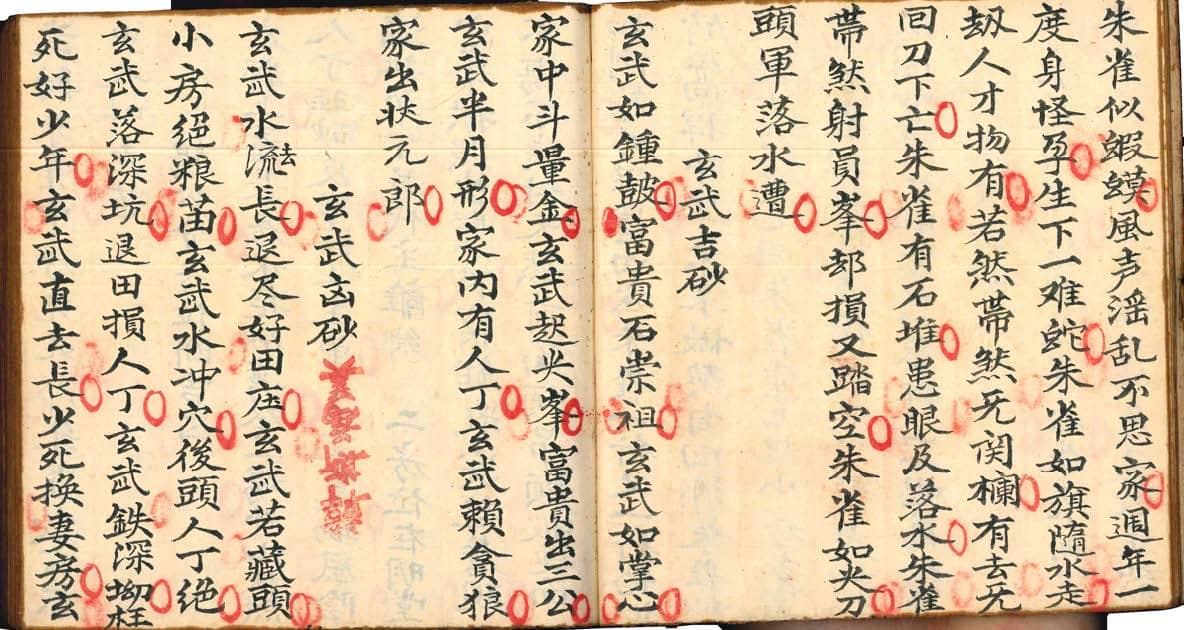 朱雀似蝦蟆風声滛乱不思家週年一
度身怪孕生下一难蛇朱雀如旗隨水走
刼人才物有若然帶煞旡関欄有去旡
回刀下亡朱雀有石堆患眼及落水朱雀
帶煞射員峯却損又踏空朱雀如尖刀
頭軍落水遭
玄武吉砂
玄武如鍾皷富貴石崇祖玄武如掌心
家中斗量金玄武起尖峯富貴出三公
玄武半月形家内有人丁玄武賴貪狼
家出状元郎
玄武凶砂
玄武水流去長退尽好田庄玄武若藏頭
小房绝粮苗玄武水冲穴後頭人丁绝
玄武落深坑退田損人丁玄武鉄深坳枉
死好少年玄武直去長少死换妻房玄